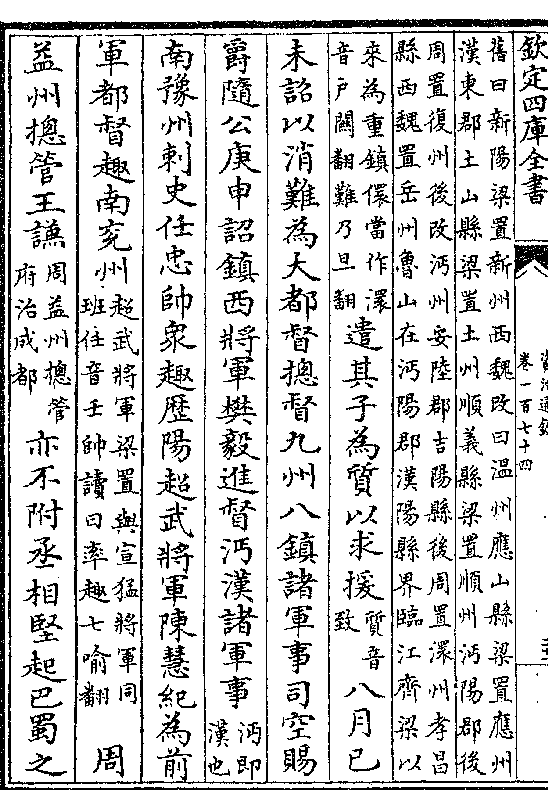 欽定四庫全書
資治通鑑
卷一百七十四
舊曰新陽梁置新州西魏改曰温州應山縣梁置應州
漢東郡土山縣梁置土州順義縣梁置順州沔陽郡後
周置復州後改沔州安陸郡吉陽縣後周置澴州孝昌
縣西魏置岳州魯山在沔陽郡漢陽縣界臨江齊梁以
來為重鎮儇當作澴
音戶關翻難乃旦翻
遣其子為質以求援
質音
致
八月已
未詔以消難為大都督摠督九州八鎮諸軍事司空賜
爵隨公庚申詔鎮西將軍樊毅進督沔漢諸軍事
沔即
漢也
南豫州刺史任忠帥衆趣歷陽超武將軍陳慧紀為前
軍都督趣南兖州
超武將軍梁置與宣猛將軍同
班任音壬帥讀曰率趣七喻翻
周
益州摠管王謙
周益州摠管
府治成都
亦不附丞相堅起巴蜀之